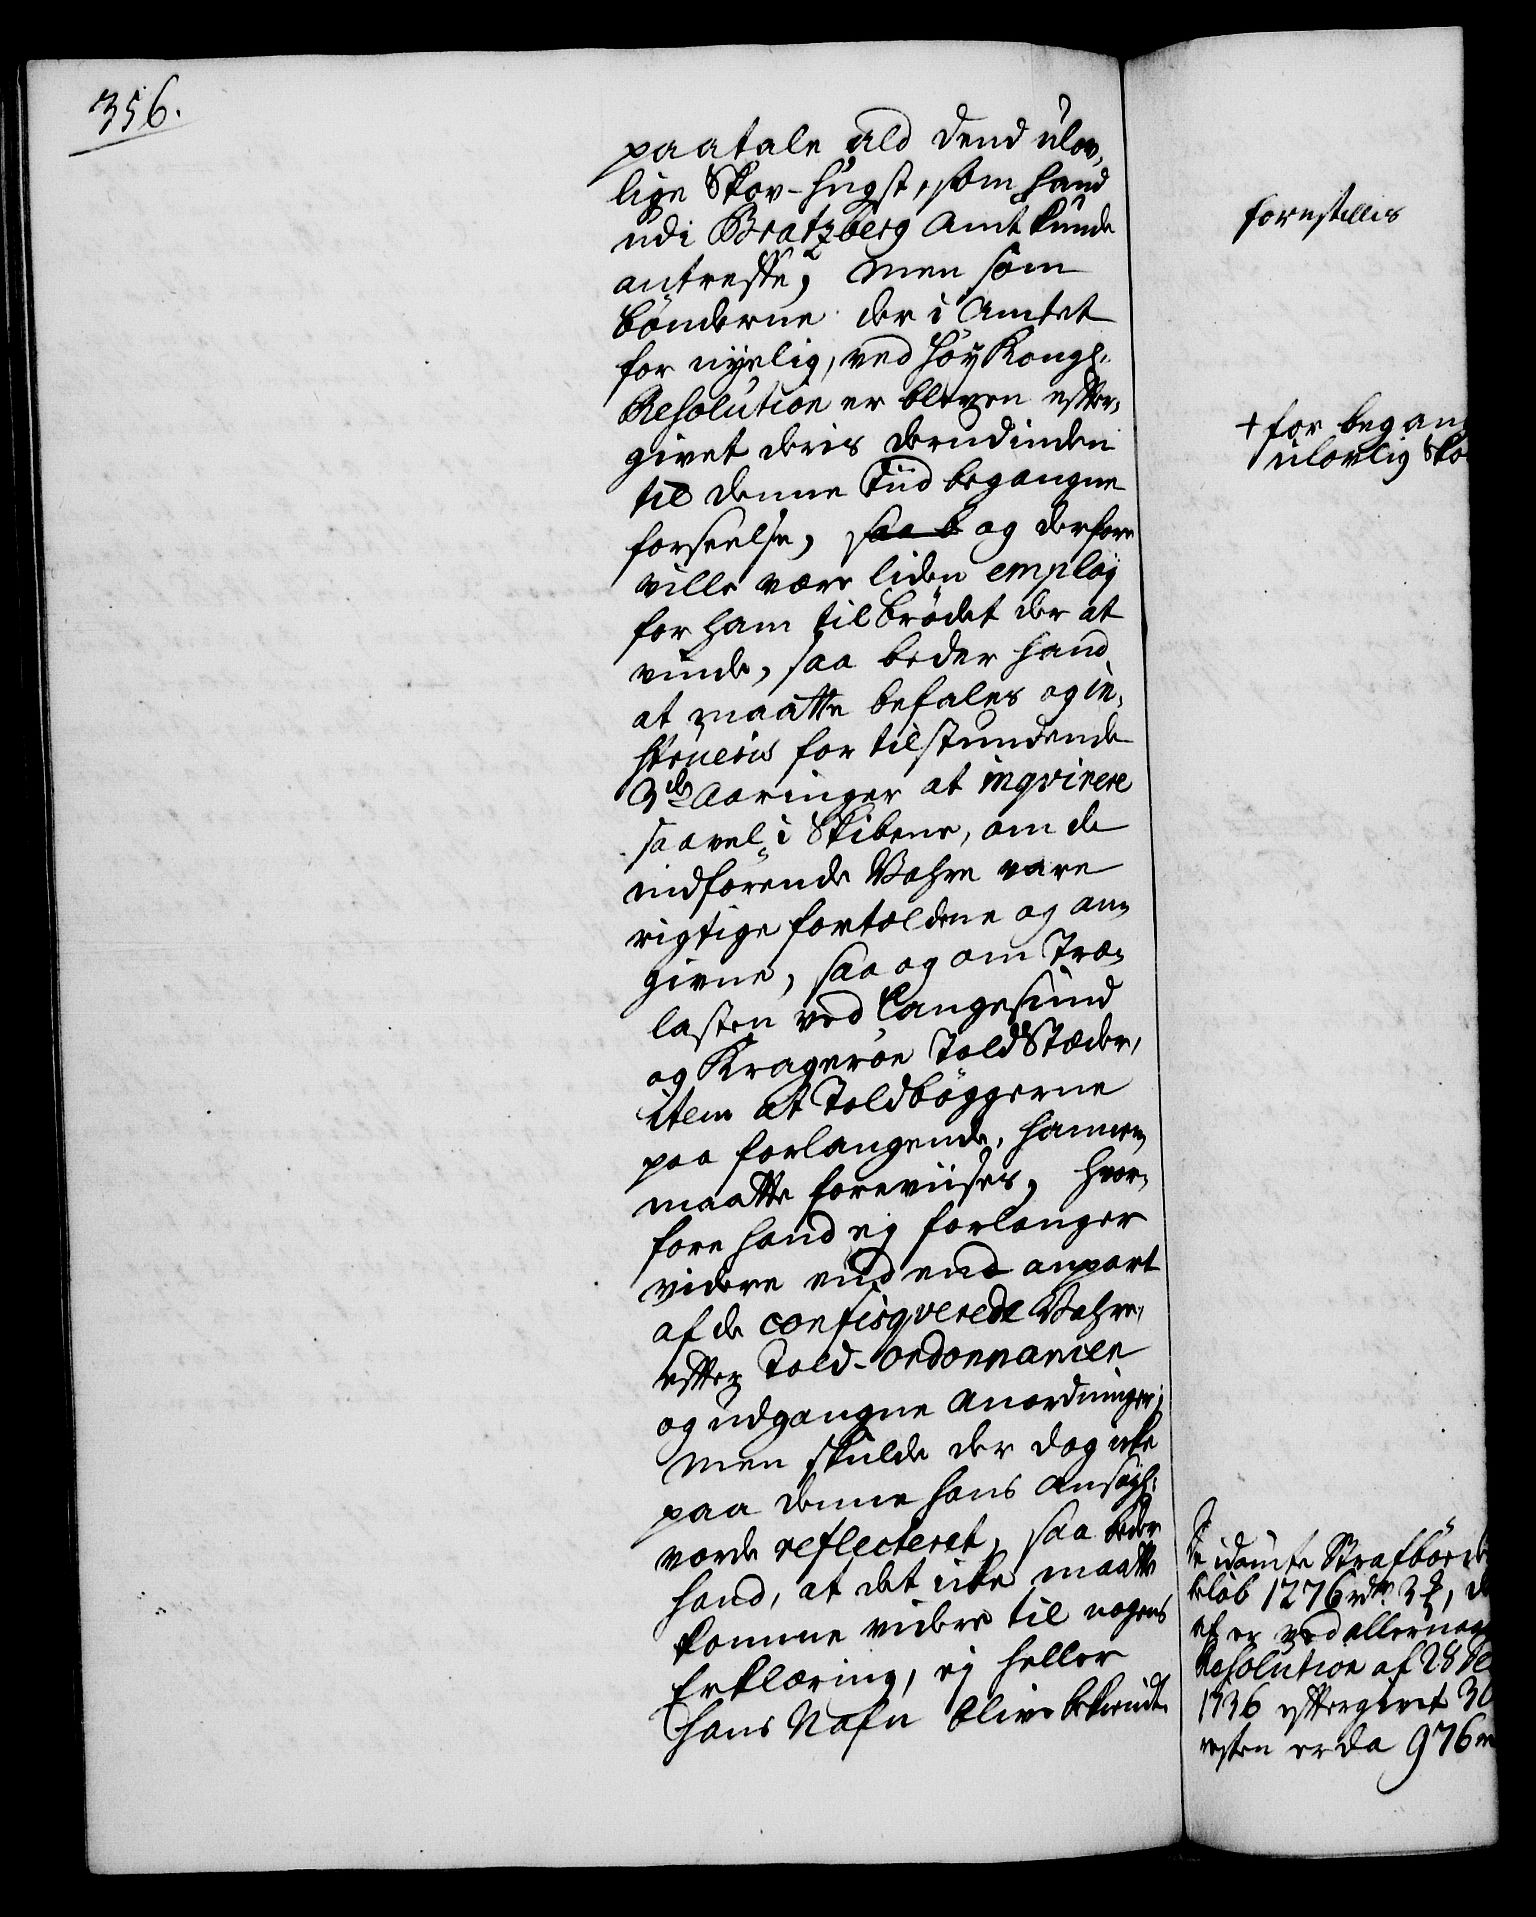 356.
paatale ald dend ulov,
lige Skov-hugst, som hand
udi Bratzberg Amt kunde
antreffe, men som
bönderne der i Amtet
for nyelig, ved höy Kongl.
Resolution er bleven effter,
givet deris derudinden
til denne Tiid begangne
forseelse, saa b og derfore
ville være liden employ
for ham til brödet der at
vinde, saa beder hand
at maatte befales og in,
strueris for tilstundende
3de Aaringer at inqvirere
saavel i Skibene, om de
indförende Vahre vare
rigtige fortoldene og an,
givne, saa og om Træ,
lasten ved Langesund
og Kragerøe ToldStæder,
item at Toldböggerne
paa forlangende, hannem
maatte foreviises, hvor,
fore hand ej forlanger
videre end end anpart
af de confisqverede Vahre,
effter Told-ordonnancen
og udgangne Anordninger;
men skulde der dog icke
paa denne hans Ansögn:
vorde reflecteret, saa beder
hand, at det icke maatte
komme videre til nogens
Erklæring, ej heller
hans Nafn blive bekiendt
fornstillis
+ for began
ulovlig Sko
de idömte Strafböder
belöb 1276 rdr. 3
af er ved allernaa
Resolution af 28
1736 efftergivet 30
resten er da 976